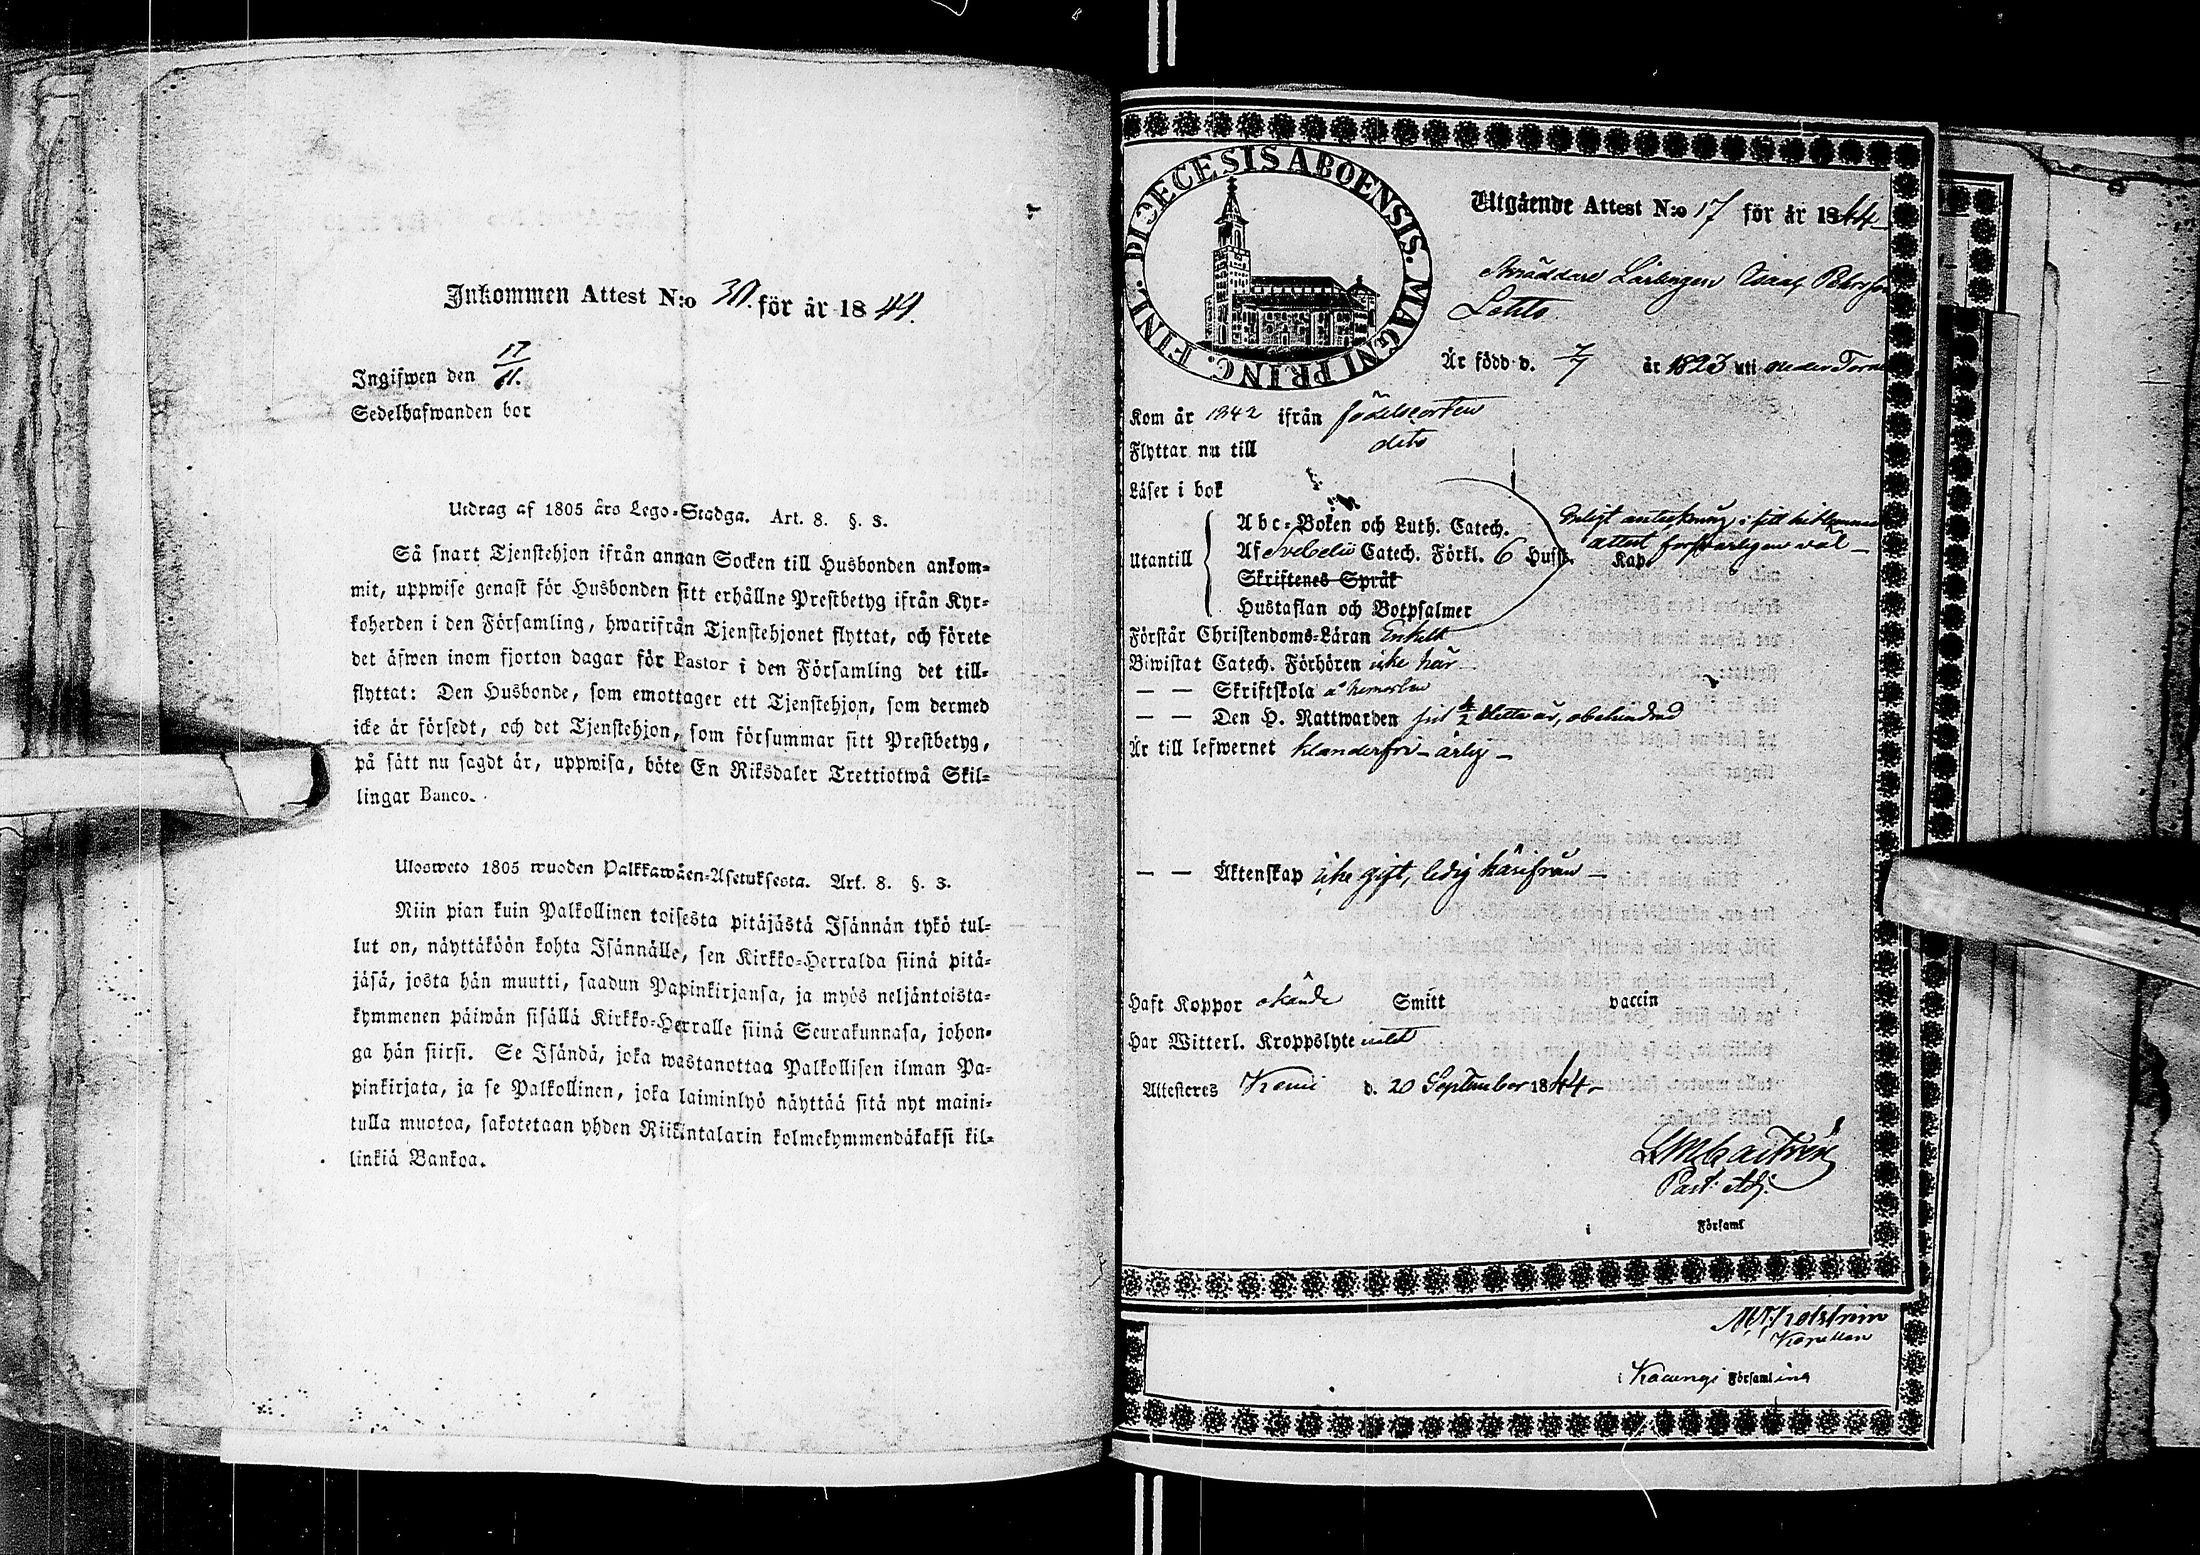 Inkommen Attest N:o 30. för år 1844.
Ingifwen den 17/11.
Sedelhafwanden bor
Utdrag af 1805 års Lego-Stadga. Art. 8. §. 3.
Så snart Tjenstehjon ifrån annan Socken till Husbonden ankom-
mit, uppwise genast för Husbonden sitt erhållne Prestbetyg ifrån Kyr-
koherden i den Församling, hwarifrån Tjenstehjonet flyttat, och förete
det äfwen inom fjorton dagar för Pastor i den Församling det till-
flyttat: Den Husbonde, som emottager ett Tjenstehjon, som dermed
icke är försedt, och det Tjenstehjon, som försummar sitt Prestbetyg,
på sätt nu sagdt är, uppwisa, böte En Riksdaler Trettiotwå Skil-
lingar Banco.
Ulosweto 1805 wuoden Palkkawäen-Asetuksesta. Art. 8. §. 3.
Niin pian kuin Palkollinen toisesta pitäjästä Isännän tykö tul-
lut on, näyttäköön kohta Isännälle, sen Kirkko-Herralda siinä pitä-
jäsä, josta hän muutti, saadun Papinkirjansa, ja myös neljäntoista-
kymmenen päiwän sisällä Kirkko-Herralle siinä Seurakunnasa, johon-
ga hän siirsi. Se Isändä, joka wastanottaa Palkollisen ilman Pa-
pinkirjata, ja se Palkollinen, joka laiminlyö näyttää sitä nyt maini-
tulla muotoa, sakotetaan yhden Riikintalarin kolmekymmendäkaksi kil-
linkiä Bankoa.
DIOECESIS ABOENSIS. MAGNI PRINC. FINL.
Utgående Attest N:o 17 för år 1844
Skräddare Lärlingen Isaac Petersson
Lehto
Är född d. 7/7 år 1823 uti neder Torne
Kom år 1842 ifrån födelseorten
Flyttar nu till dito
Läser i bok
Utantill
Abc-Boken och Luth. Catech.
Af Svebelii Catech. Förkl. 6 Hufst. Kap.
Skriftenes Språk
Hustaflan och Botpsalmer
Enligt anteckning i sitt hitkomne
attest försvarligen väl
Förstår Christendoms-Läran Enkelt
Biwistat Catech. Förhören icke här
— — Skriftskola å hemorten
— — Den H. Nattwarden detta år, obehindrad
Är till lefwernet klanderfri - ärlig -
— — Äktenskap icke gift, ledig härifrån -
Haft Koppor okände Smitt vaccin
Har Witterl. Kroppslyte intet
Attesteres Kemi d. 20 September 1844
L M Castrén
Past: Adj.
i Församl
Kapellan
i Församling